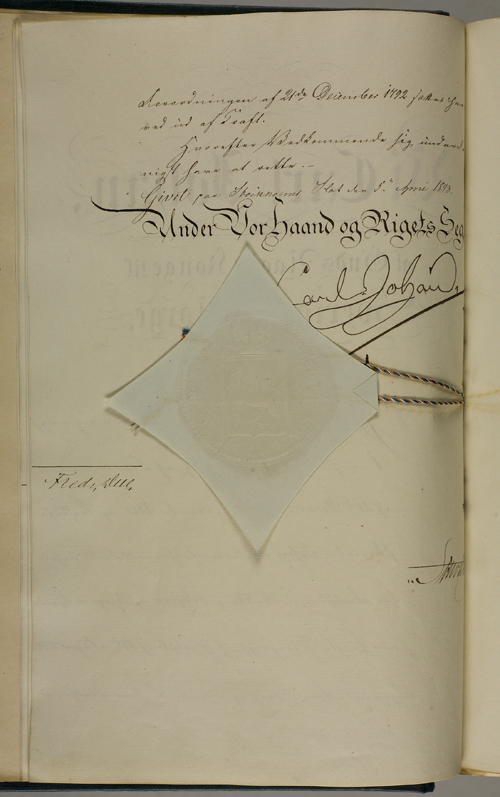 Forordningen af 21de December 1792 sættes her
ved ud af Kraft.
Hvorefter Vedkommende sig under
nigst have at rette.
Givet paa Stockholms Slot den 5te April
Under Vor Haand og Rigets Seg
Carl Johan